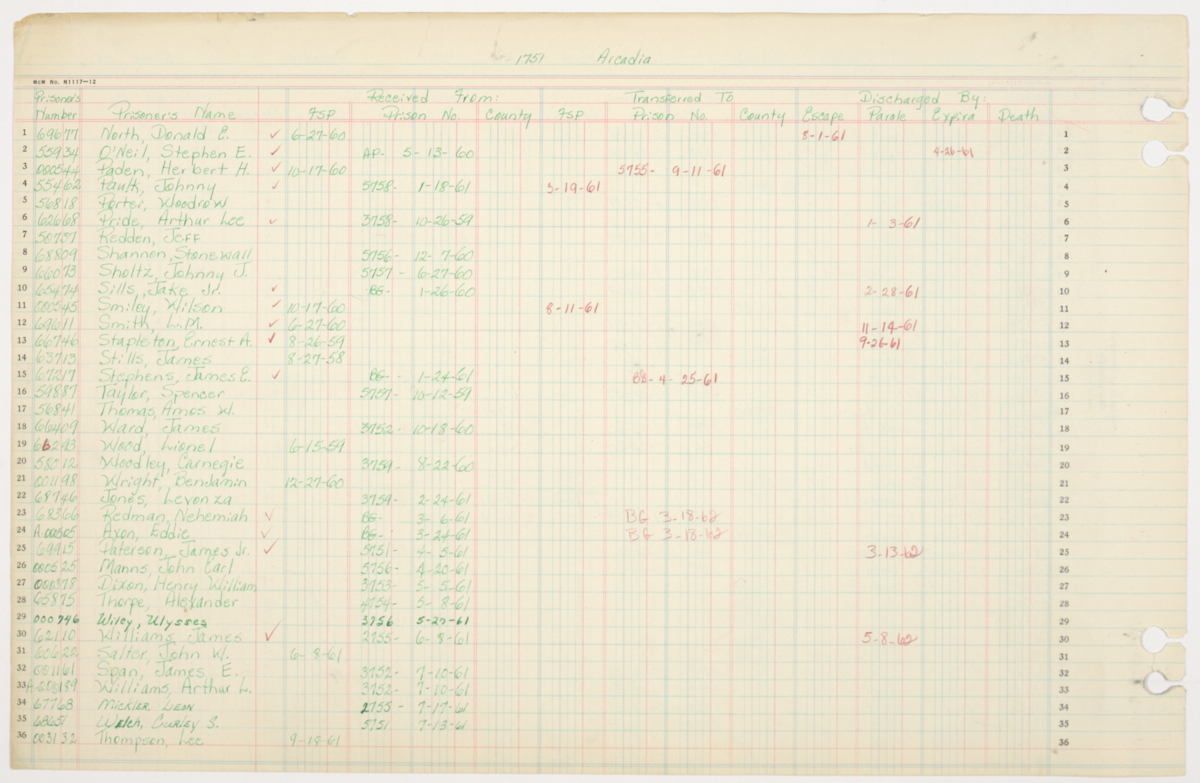 1751 Arcadia
MCM No. N1117-12
Received From: Transferred To Discharged By:
Prisoner's Number Prisoner's Name FSP Prison No. County FSP Prison No. County Escape Parole Expire Death
1 69677 North, Donald E. ✓ 6-27-60 8-1-61 1
2 55934 O'Neil, Stephen E. ✓ AP- 5-13-60 4-26-61 2
3 000544 Paden, Herbert H. ✓ 10-17-60 5755- 9-11-61 3
4 55462 Faulk, Johnny ✓ 5758- 1-18-61 3-19-61 4
5 56818 Porter, Woodrow 5
6 62668 Pride, Arthur Lee ✓ 3758- 10-26-59 1-3-61 6
7 50737 Redden, Jeff 7
8 68809 Shannon, Stonewall 5756- 12-7-60 8
9 66073 Sholtz, Johnny J. 5757- 6-27-60 9
10 65474 Sills, Jake Jr. ✓ BG- 1-26-60 2-28-61 10
11 000545 Smiley, Wilson ✓ 10-17-60 8-11-61 11
12 69611 Smith, L.M. ✓ 6-27-60 11-14-61 12
13 66746 Stapleton, Ernest A. ✓ 8-26-59 9-26-61 13
14 63713 Stills, James 8-27-58 14
15 67217 Stephens, James E. ✓ BG- 1-24-61 BG-4-25-61 15
16 59887 Taylor, Spencer 5757- 10-12-59 16
17 56841 Thomas, Amos W. 17
18 66409 Ward, James 3752- 10-18-60 18
19 66293 Wood, Lionel 6-15-59 19
20 58012 Woodley, Carnegie 3759- 8-22-60 20
21 001198 Wright, Benjamin 12-27-60 21
22 68746 Jones, Levonza 3759- 2-24-61 22
23 68366 Redman, Nehemiah ✓ BG- 3-6-61 BG 3-18-62 23
24 A-00505 Axon, Eddie ✓ BG- 3-24-61 BG 3-18-62 24
25 69915 Paterson, James Jr. ✓ 5751- 4-5-61 3-13-62 25
26 000525 Manns, John Earl 5756- 4-20-61 26
27 000378 Dixon, Henry William 3753- 5-5-61 27
28 65875 Thorpe, Alexander 4754- 5-8-61 28
29 000746 Wiley, Ulysses 3756 5-27-61 29
30 62110 Williams, James ✓ 2755- 6-8-61 5-8-62 30
31 60622 Salter, John W. 6-8-61 31
32 001161 Span, James E. 3752- 7-10-61 32
33 Williams, Arthur L. 3752- 7-10-61 33
34 67768 Mickler Leon 2755- 7-17-61 34
35 68651 Welch, Curley S. 5751 7-13-61 35
36 003132 Thompson, Lee 9-18-61 36